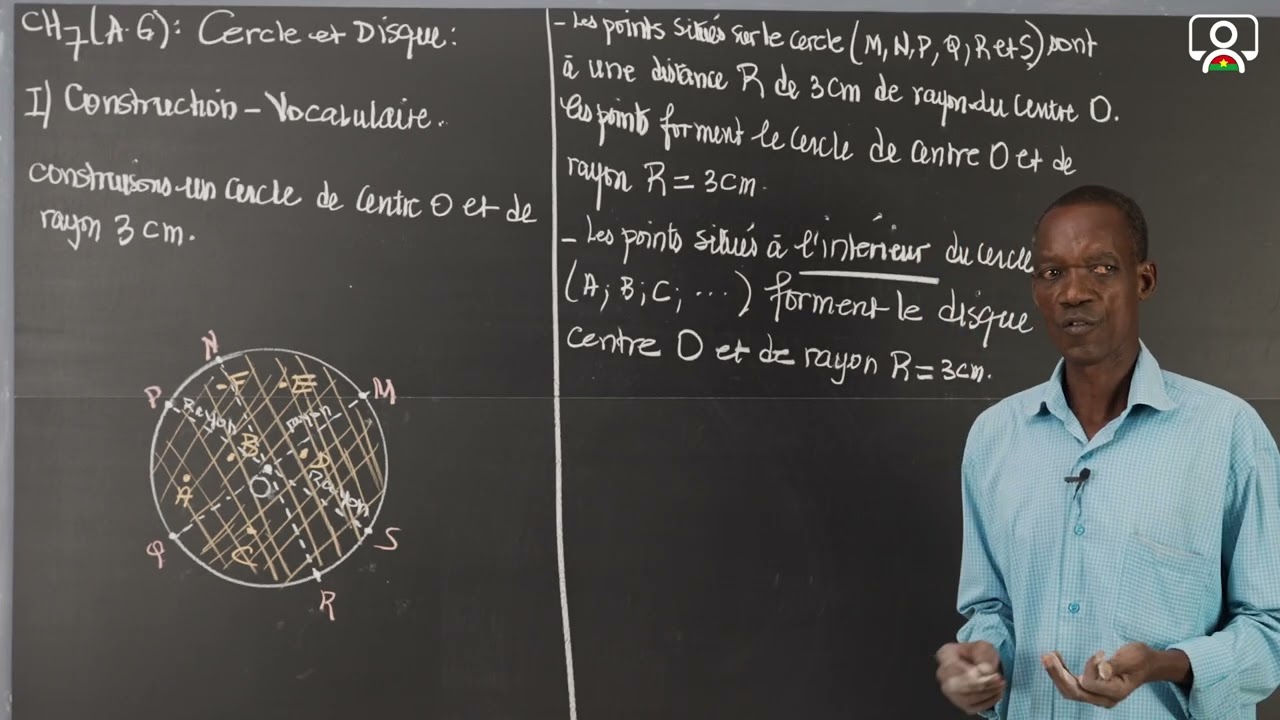 CH7(A.G): Cercle et Disque:
I) Construction - Vocabulaire.
construisons un cercle de centre O et de
rayon 3 cm.
N
M
P
F
E
Rayon
rayon
B
D
O
Rayon
A
C
Q
S
R
- Les points situés sur le cercle (M, N, P, Q, R et S) sont
à une distance R de 3cm de rayon du centre O.
les points forment le cercle de centre O et de
rayon R = 3cm.
- Les points situés à l'intérieur du cercle
(A; B; C; ...) forment le disque
centre O et de rayon R = 3cm.